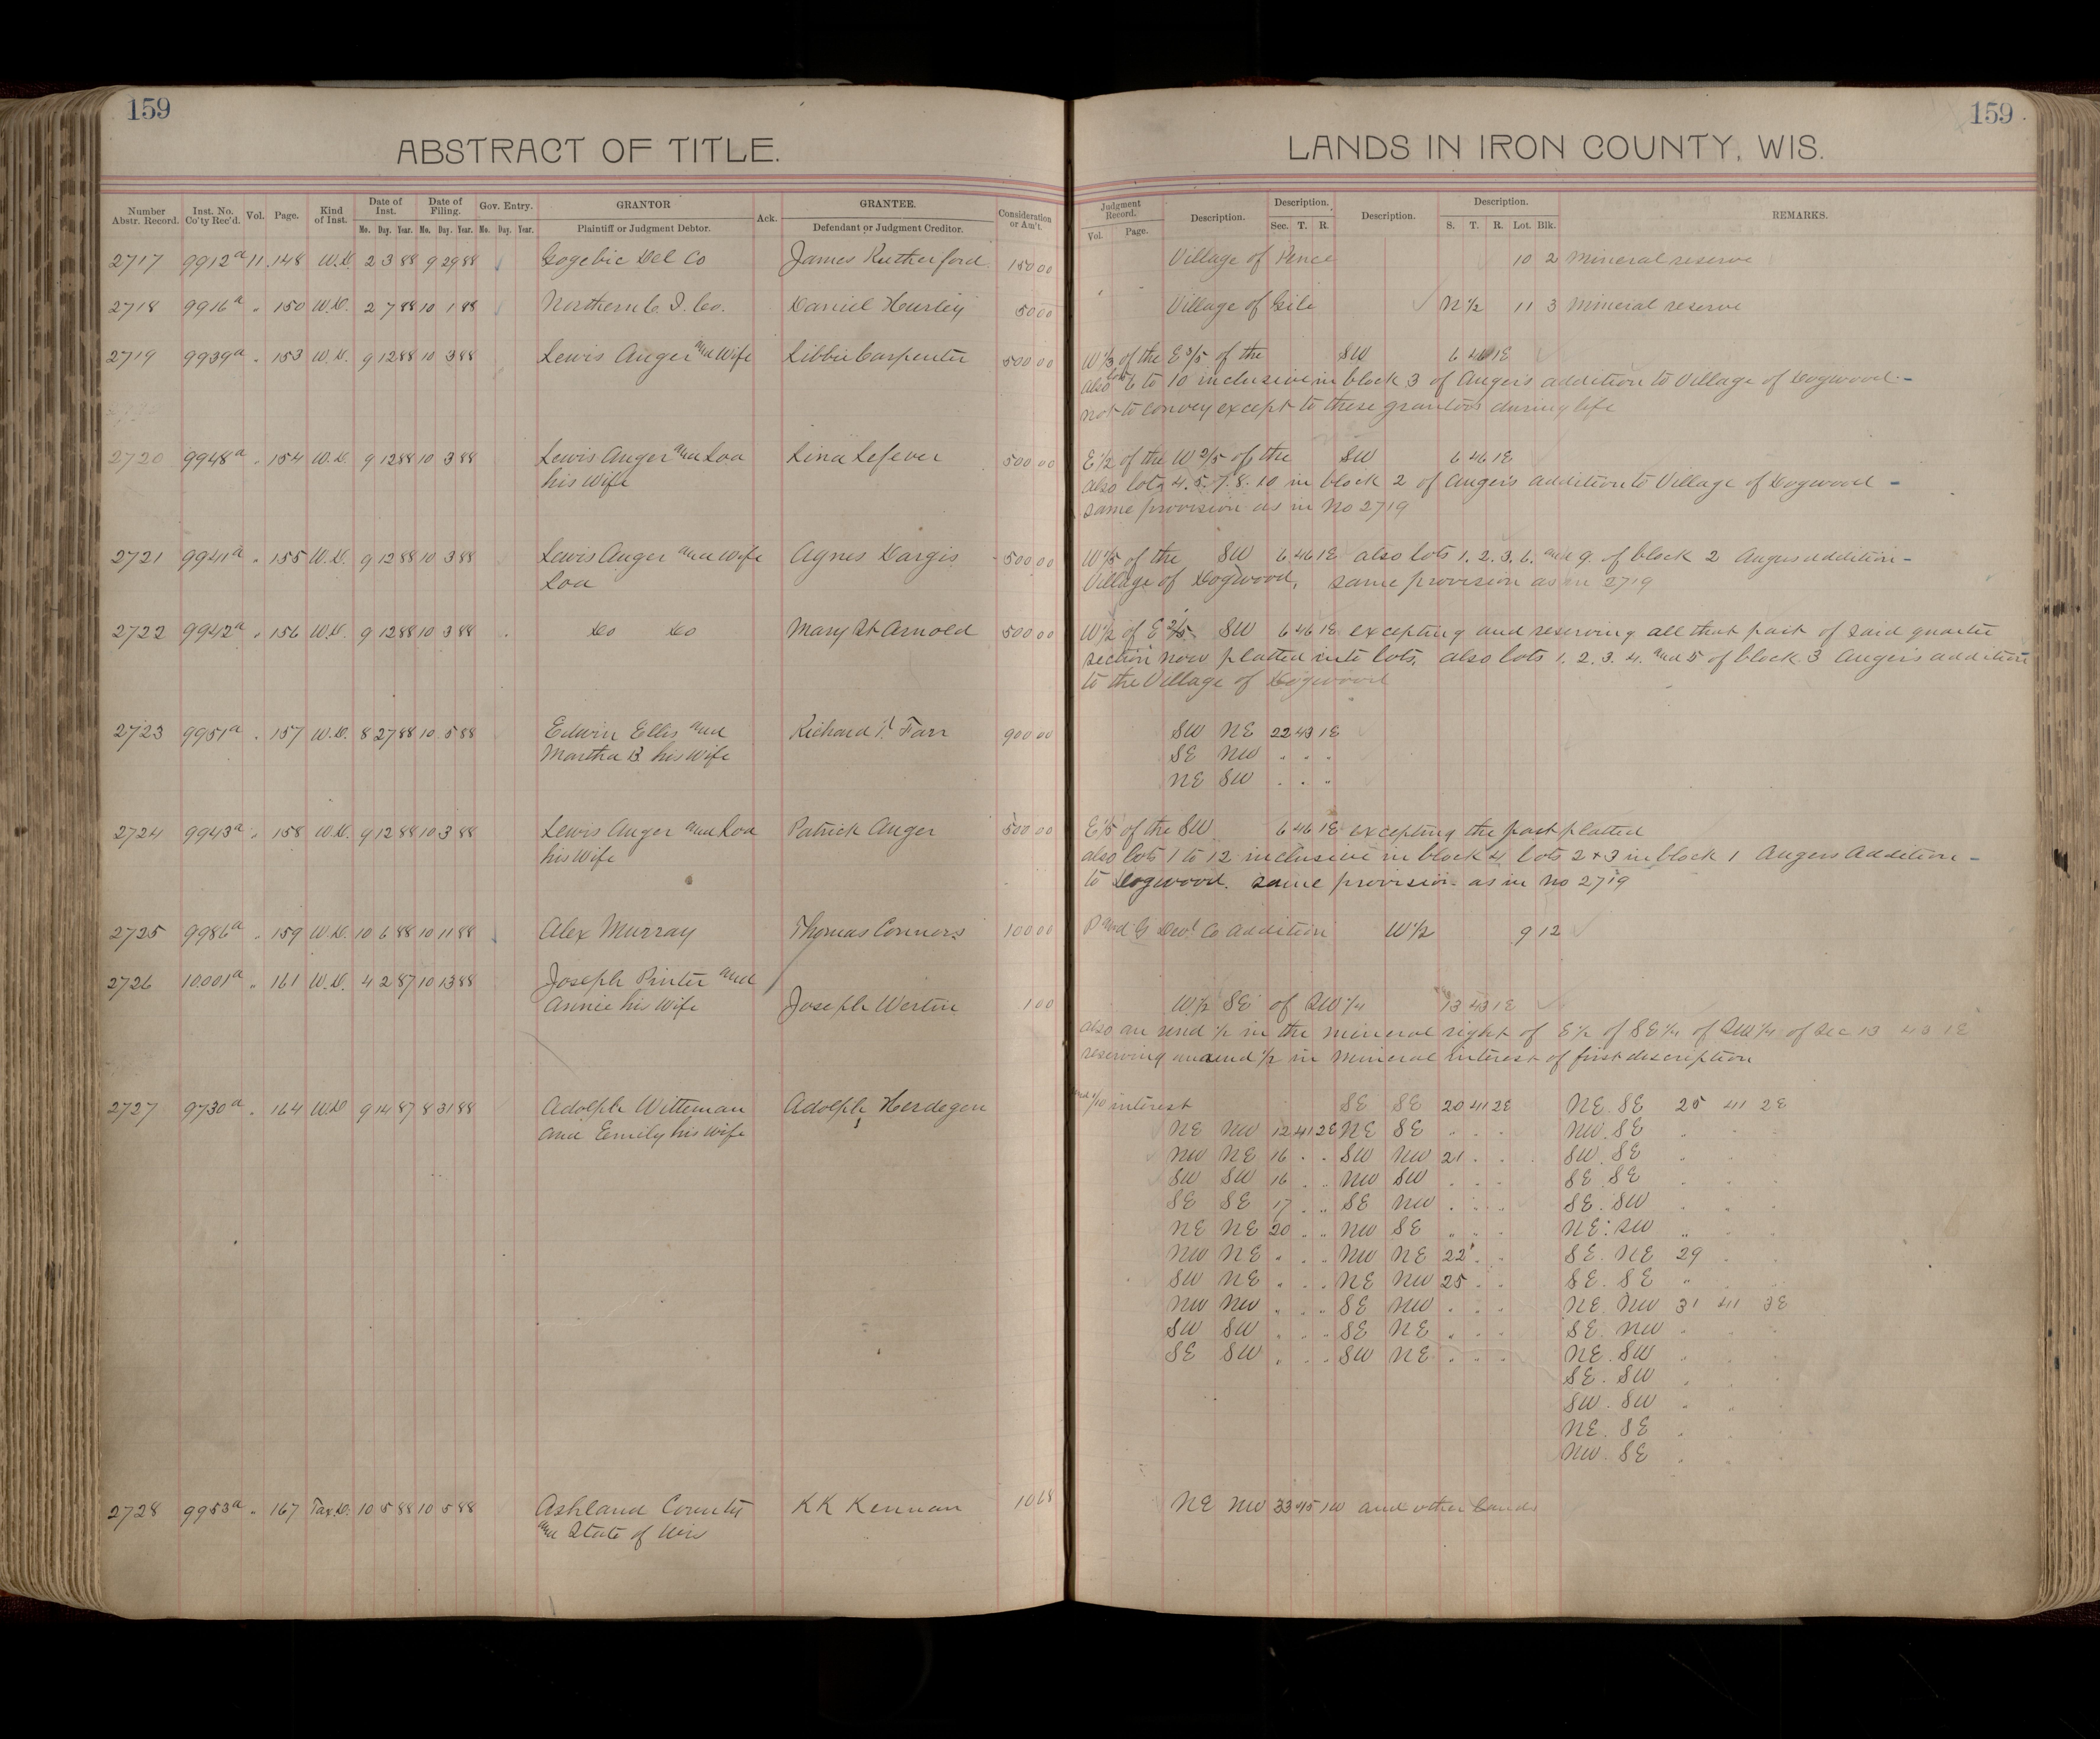 159
ABSTRACT OF TITLE.
Number Abstr. Record. Inst. No. Co'ty Rec'd. Vol. Page. Kind of Inst. Date of Inst. Mo. Day. Year. Date of Filing. Mo. Day. Year. Gov. Entry. Mo. Day. Year. GRANTOR Plaintiff or Judgment Debtor. Ack. GRANTEE. Defendant or Judgment Creditor. Consideration or Am't.
2717 9912a 11 148 W.D. 2 3 88 9 29 88 Gogebic Del Co James Rutherford 150 00
2718 9916a " 150 W.D. 2 7 88 10 1 88 Northern C. I. Co. Daniel Hurley 50 00
2719 9939a " 153 W.D. 9 12 88 10 3 88 Lewis Anger and Wife Libbie Carpenter 500 00
2720 9948a " 154 W.D. 9 12 88 10 3 88 Lewis Anger and Loa Lina Lefever 500 00
his Wife
2721 9941a " 155 W.D. 9 12 88 10 3 88 Lewis Anger and Wife Agnes Dargis 500 00
Loa
2722 9942a " 156 W.D. 9 12 88 10 3 88 Do Do Mary St Arnold 500 00
2723 9951a " 157 W.D. 8 27 88 10 5 88 Edwin Ellis and Richard Farr 900 00
Martha B his Wife
2724 9943a " 158 W.D. 9 12 88 10 3 88 Lewis Anger and Loa Patrick Anger 500 00
his Wife
2725 9986a " 159 W.D. 10 6 88 10 11 88 Alex Murray Thomas Connors 100 00
2726 10.001a " 161 W.D. 4 2 87 10 13 88 Joseph Pinter and
Annie his Wife Joseph Wertin 1 00
2727 9730a " 164 W.D 9 14 87 8 31 88 Adolph Witteman Adolph Herdegen
and Emily his Wife
2728 9953a " 167 Tax.D. 10 5 88 10 5 88 Ashland County KK Kennan 10 68
and State of Wis
159
LANDS IN IRON COUNTY, WIS.
Judgment Record. Vol. Page. Description. Description. Sec. T. R. Description. Description. S. T. R. Lot. Blk. REMARKS.
Village of Pence 10 2 Mineral reserve
Village of Gile N 1/2 11 3 Mineral reserve
W 1/3 of the E 3/5 of the SW 6 46 1E
also lots 6 to 10 inclusive in block 3 of Angers addition to Village of Dogwood -
not to convey except to these grantors during life
E 1/2 of the W 2/5 of the SW 6 46 1E
also lots 4. 5. 7. 8. 10 in block 2 of Angers addition to Village of Dogwood -
same provision as in No 2719
W 1/5 of the SW 6 46 1E also lots 1. 2. 3. 6. and 9. of block 2 Angers addition -
Village of Dogwood, same provision as in 2719
W 1/2 of E 2/5 SW 6 46 1E excepting and reserving all that part of said quarter
section now platted into lots, also lots 1. 2. 3. 4. and 5 of block 3 Angers addition
to the Village of Dogwood
SW NE 22 43 1E
SE NW " " "
NE SW " " "
E 1/5 of the SW 6 46 1E excepting the part platted
also lots 1 to 12 inclusive in block 4 lots 2 + 3 in block 1 Angers Addition -
to Dogwood. same provision as in No 2719
P and G Dev! Co addition W 1/2 9 12
W 1/2 SE of SW 1/4 13 43 1E
also an und 1/2 in the mineral right of E 1/2 of SE 1/4 of SW 1/4 of Sec 13 43 1E
reserving an und 1/2 in mineral interest of first description
und 1/10 interest SE SE 20 41 2E NE. SE 25 41 2E
NE NW 12 41 2E NE SE " " " NW. SE " " "
NW NE 16 " " SW NW 21 " " SW. SE " " "
SW SW 16 " " NW SW " " " SE. SE " " "
SE SE 17 " " SE NW " " " SE. SW " " "
NE NE 20 " " NW SE " " " NE. SW " " "
NW NE " " " NW NE 22 " " SE. NE 29 " "
SW NE " " " NE NW 25 " " SE. SE " " "
NW NW " " " SE NW " " " NE. NW 31 41 3E
SW SW " " " SE NE " " " SE. NW " " "
SE SW " " " SW NE " " " NE. SW " " "
SE. SW " " "
SW. SW " " "
NE. SE " " "
NW. SE " " "
NE NW 33 45 1W and other lands